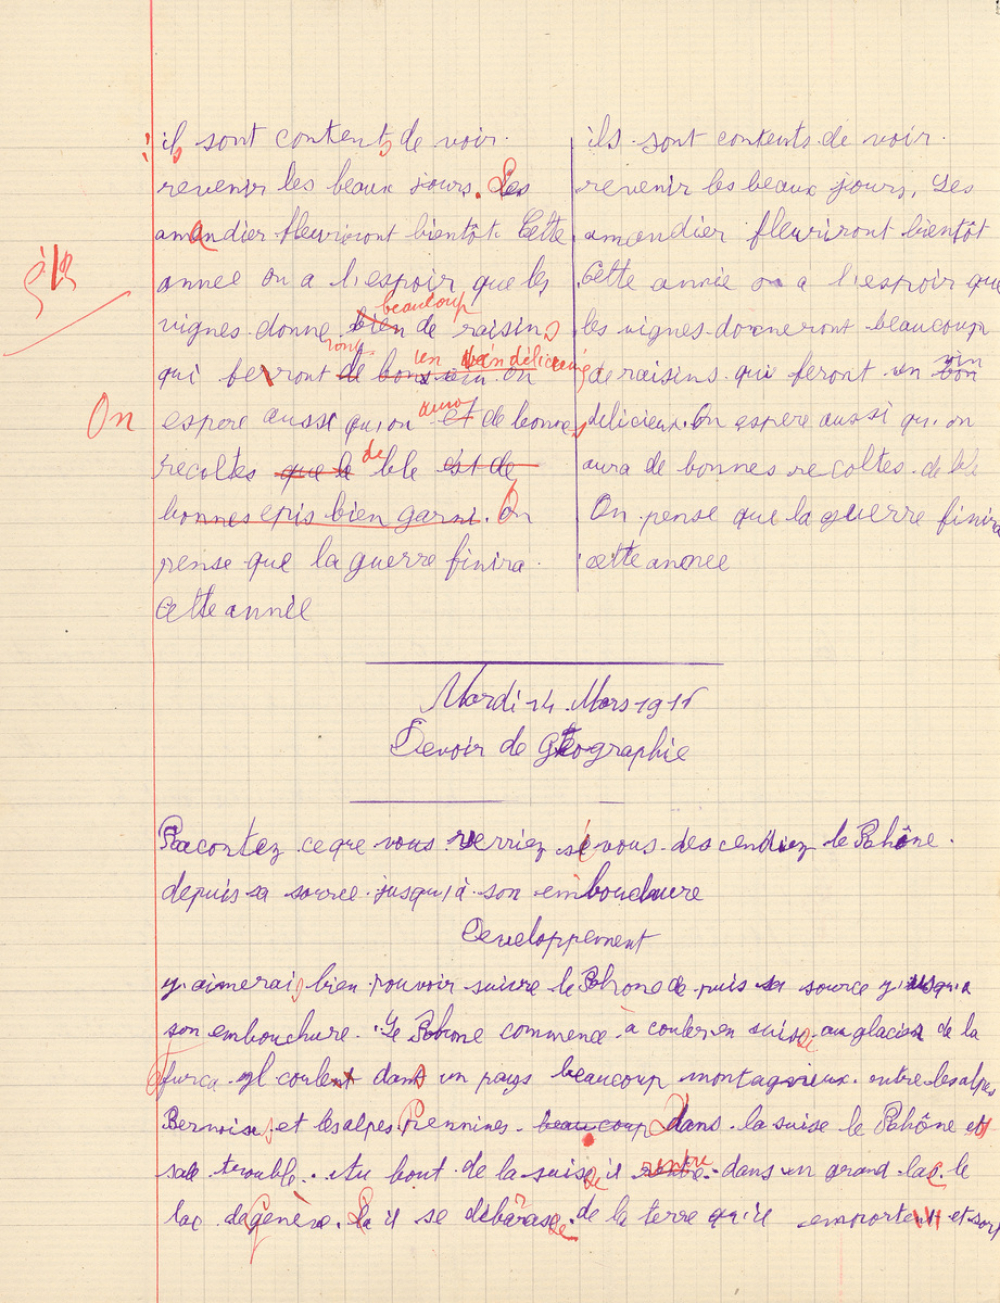 ils sont contents de voir.
revenir les beaux jours. Les
amandier fleuriront bientôt. Cette
année on a l'espoir que les
beaucoup
vignes donne bien de raisins
ront un vin délicieux
qui feront de bons vin. On
On espere aussi qu'on aura et de bonnes
recoltes que le de ble est de
bonnes epis bien garni. On
pense que la guerre finira.
cette année
ils sont contents de voir.
revenir les beaux jours. Les
amandier fleuriront bientôt
Cette annie on a l'espoir que
les vignes donneront beaucoup
vin
de raisins qui feront un bon
delicieux. On espere aussi qu'on
aura de bonnes recoltes de blé
On pense que la guerre finira
cette annee
Mardi 14 Mars 1916
Devoir de Géographie
Racontez ceque vous verriez si vous descendiez le Rhône.
depuis sa source jusqu'à son embouchure
Developpement
j'aimerais bien pouvoir suivre le Rhone depuis sa source jusqu'a
son embouchure. Le Rhone commence à couler en suisse au glacier de la
furca. Il coulent dans un pays beaucoup montagneux. entre les alpes
Bernoises, et les alpes Pennines. beaucoup dans la suise le Rhône est
sale trouble. Au bout de la suisse il rentre dans un grand lac. le
lac de genève. La il se débarasse de la terre qu'il emportent et sort